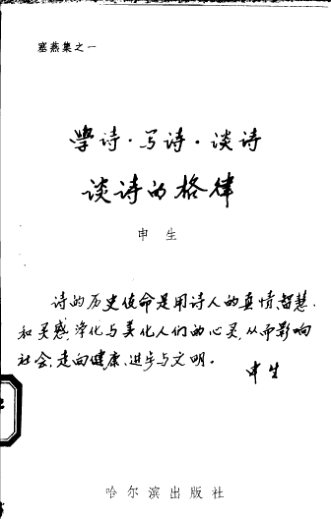 塞燕集之一
學诗·写诗·谈诗
谈诗的格律
申生
诗的历史使命是用诗人的真情、智慧、
和灵感，净化与美化人们的心灵，从而影响
社会，走向健康、进步与文明。
申生
哈尔滨出版社